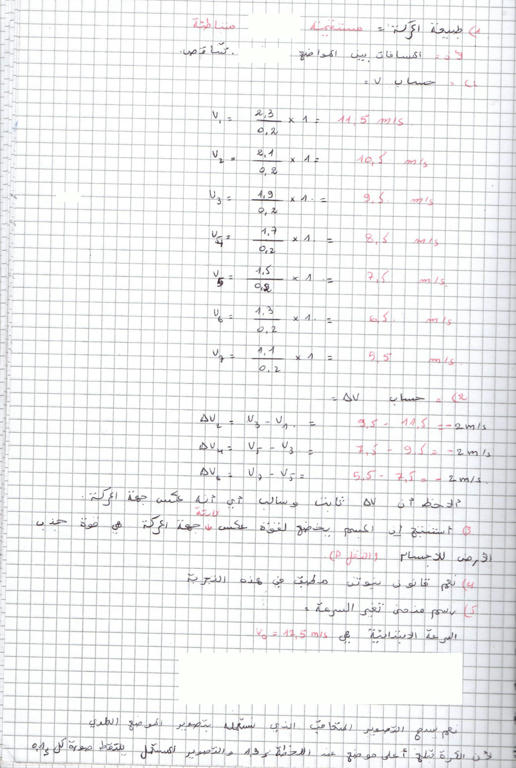 1) طبيعة الحركة = مستقيمة متباطئة
لأن = المسافات بين المواضع تتناقص.
حساب V =
V₁ = 2,3/0,2 × 1 = 11,5 m/s
V₂ = 2,1/0,2 × 1 = 10,5 m/s
V₃ = 1,9/0,2 × 1 = 9,5 m/s
V₄ = 1,7/0,2 × 1 = 8,5 m/s
V₅ = 1,5/0,2 × 1 = 7,5 m/s
V₆ = 1,3/0,2 × 1 = 6,5 m/s
V₇ = 1,1/0,2 × 1 = 5,5 m/s
حساب ΔV =
ΔV₂ = V₃ - V₁ = 9,5 - 11,5 = -2 m/s
ΔV₄ = V₅ - V₃ = 7,5 - 9,5 = -2 m/s
ΔV₆ = V₇ - V₅ = 5,5 - 7,5 = -2 m/s.
ألاحظ أن ΔV ثابت وسالب أي أنه عكس جهة الحركة.
أستنتج أن الجسم يخضع لقوة ثابتة عكس جهة الحركة هي قوة جذب
الأرض للأجسام (الثقل P)
4) نعم قانون نيوتن مطبق في هذه التجربة
5) رسم منحنى تغير السرعة =
السرعة الابتدائية هي V₀ = 12,5 m/s
نعم يسمح التصوير المتعاقب الذي نستعمله بتصوير الموضع
لأن الكرة تبلغ أعلى موضع عند اللحظة والتصوير يلتقط صورة كل 0,1s